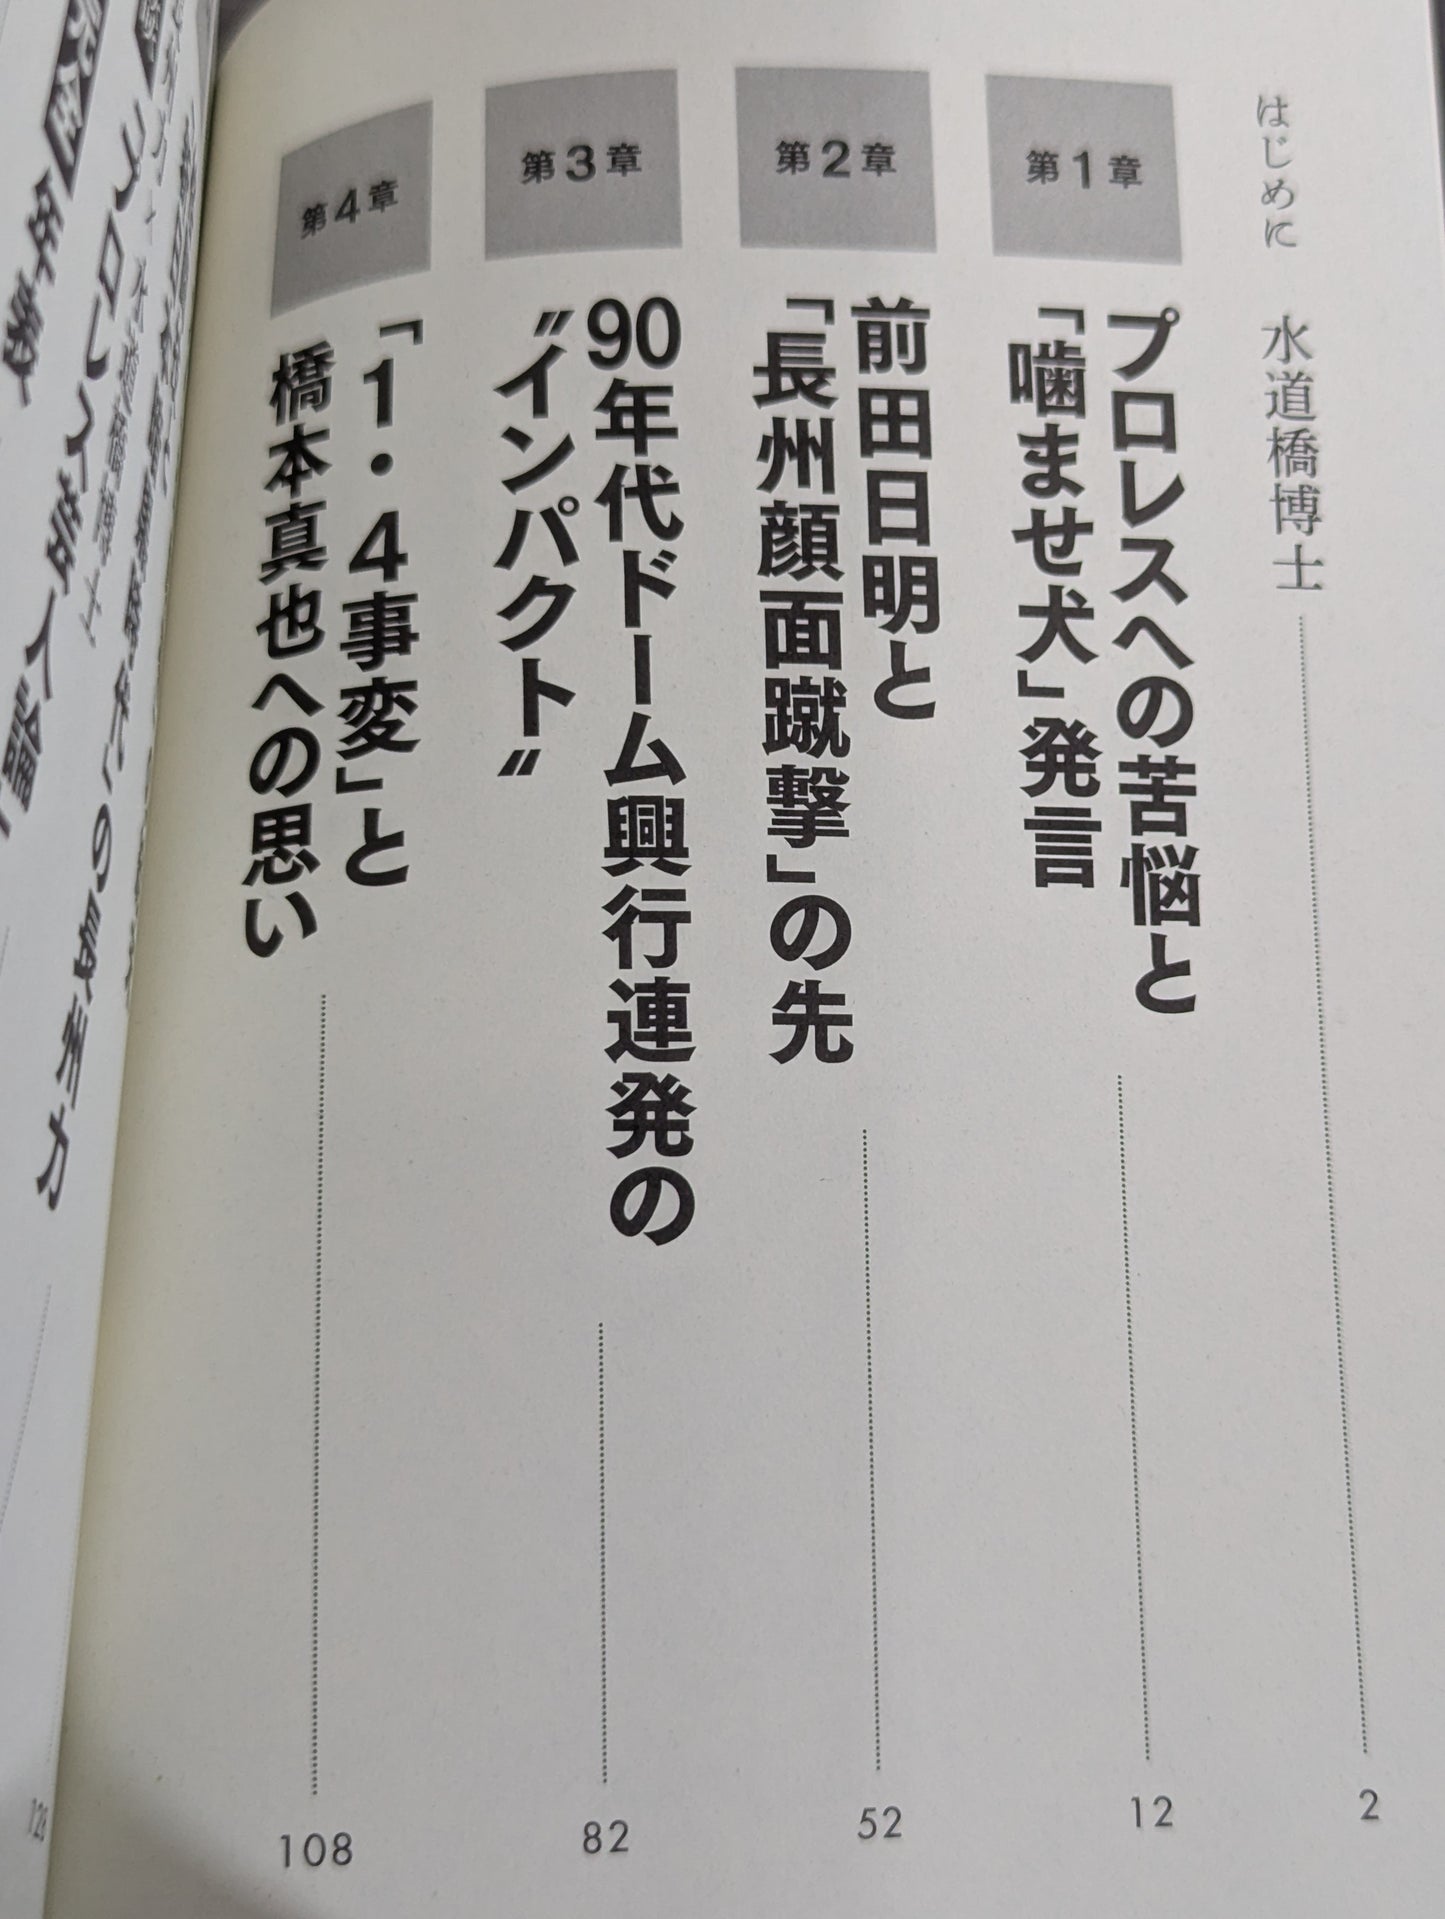 はじめに　水道橋博士 2
第1章
プロレスへの苦悩と
「噛ませ犬」発言 12
第2章
前田日明と
「長州顔面蹴撃」の先 52
第3章
90年代ドーム興行連発の
〝インパクト〟 82
第4章
「1・4事変」と
橋本真也への思い 108